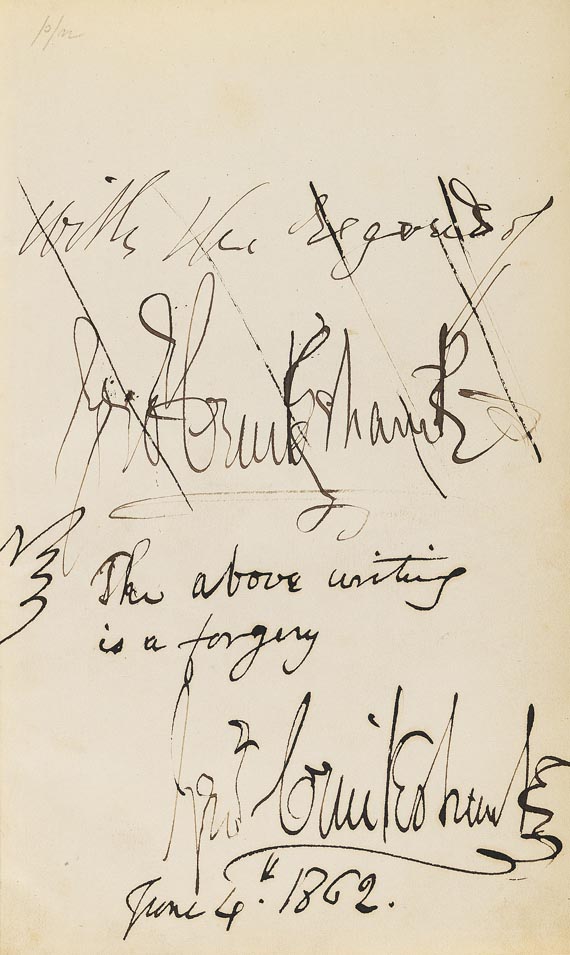 With the Regards of
Geo Cruikshank
The above writing
is a forgery
Geo Cruikshank
June 4th 1862.